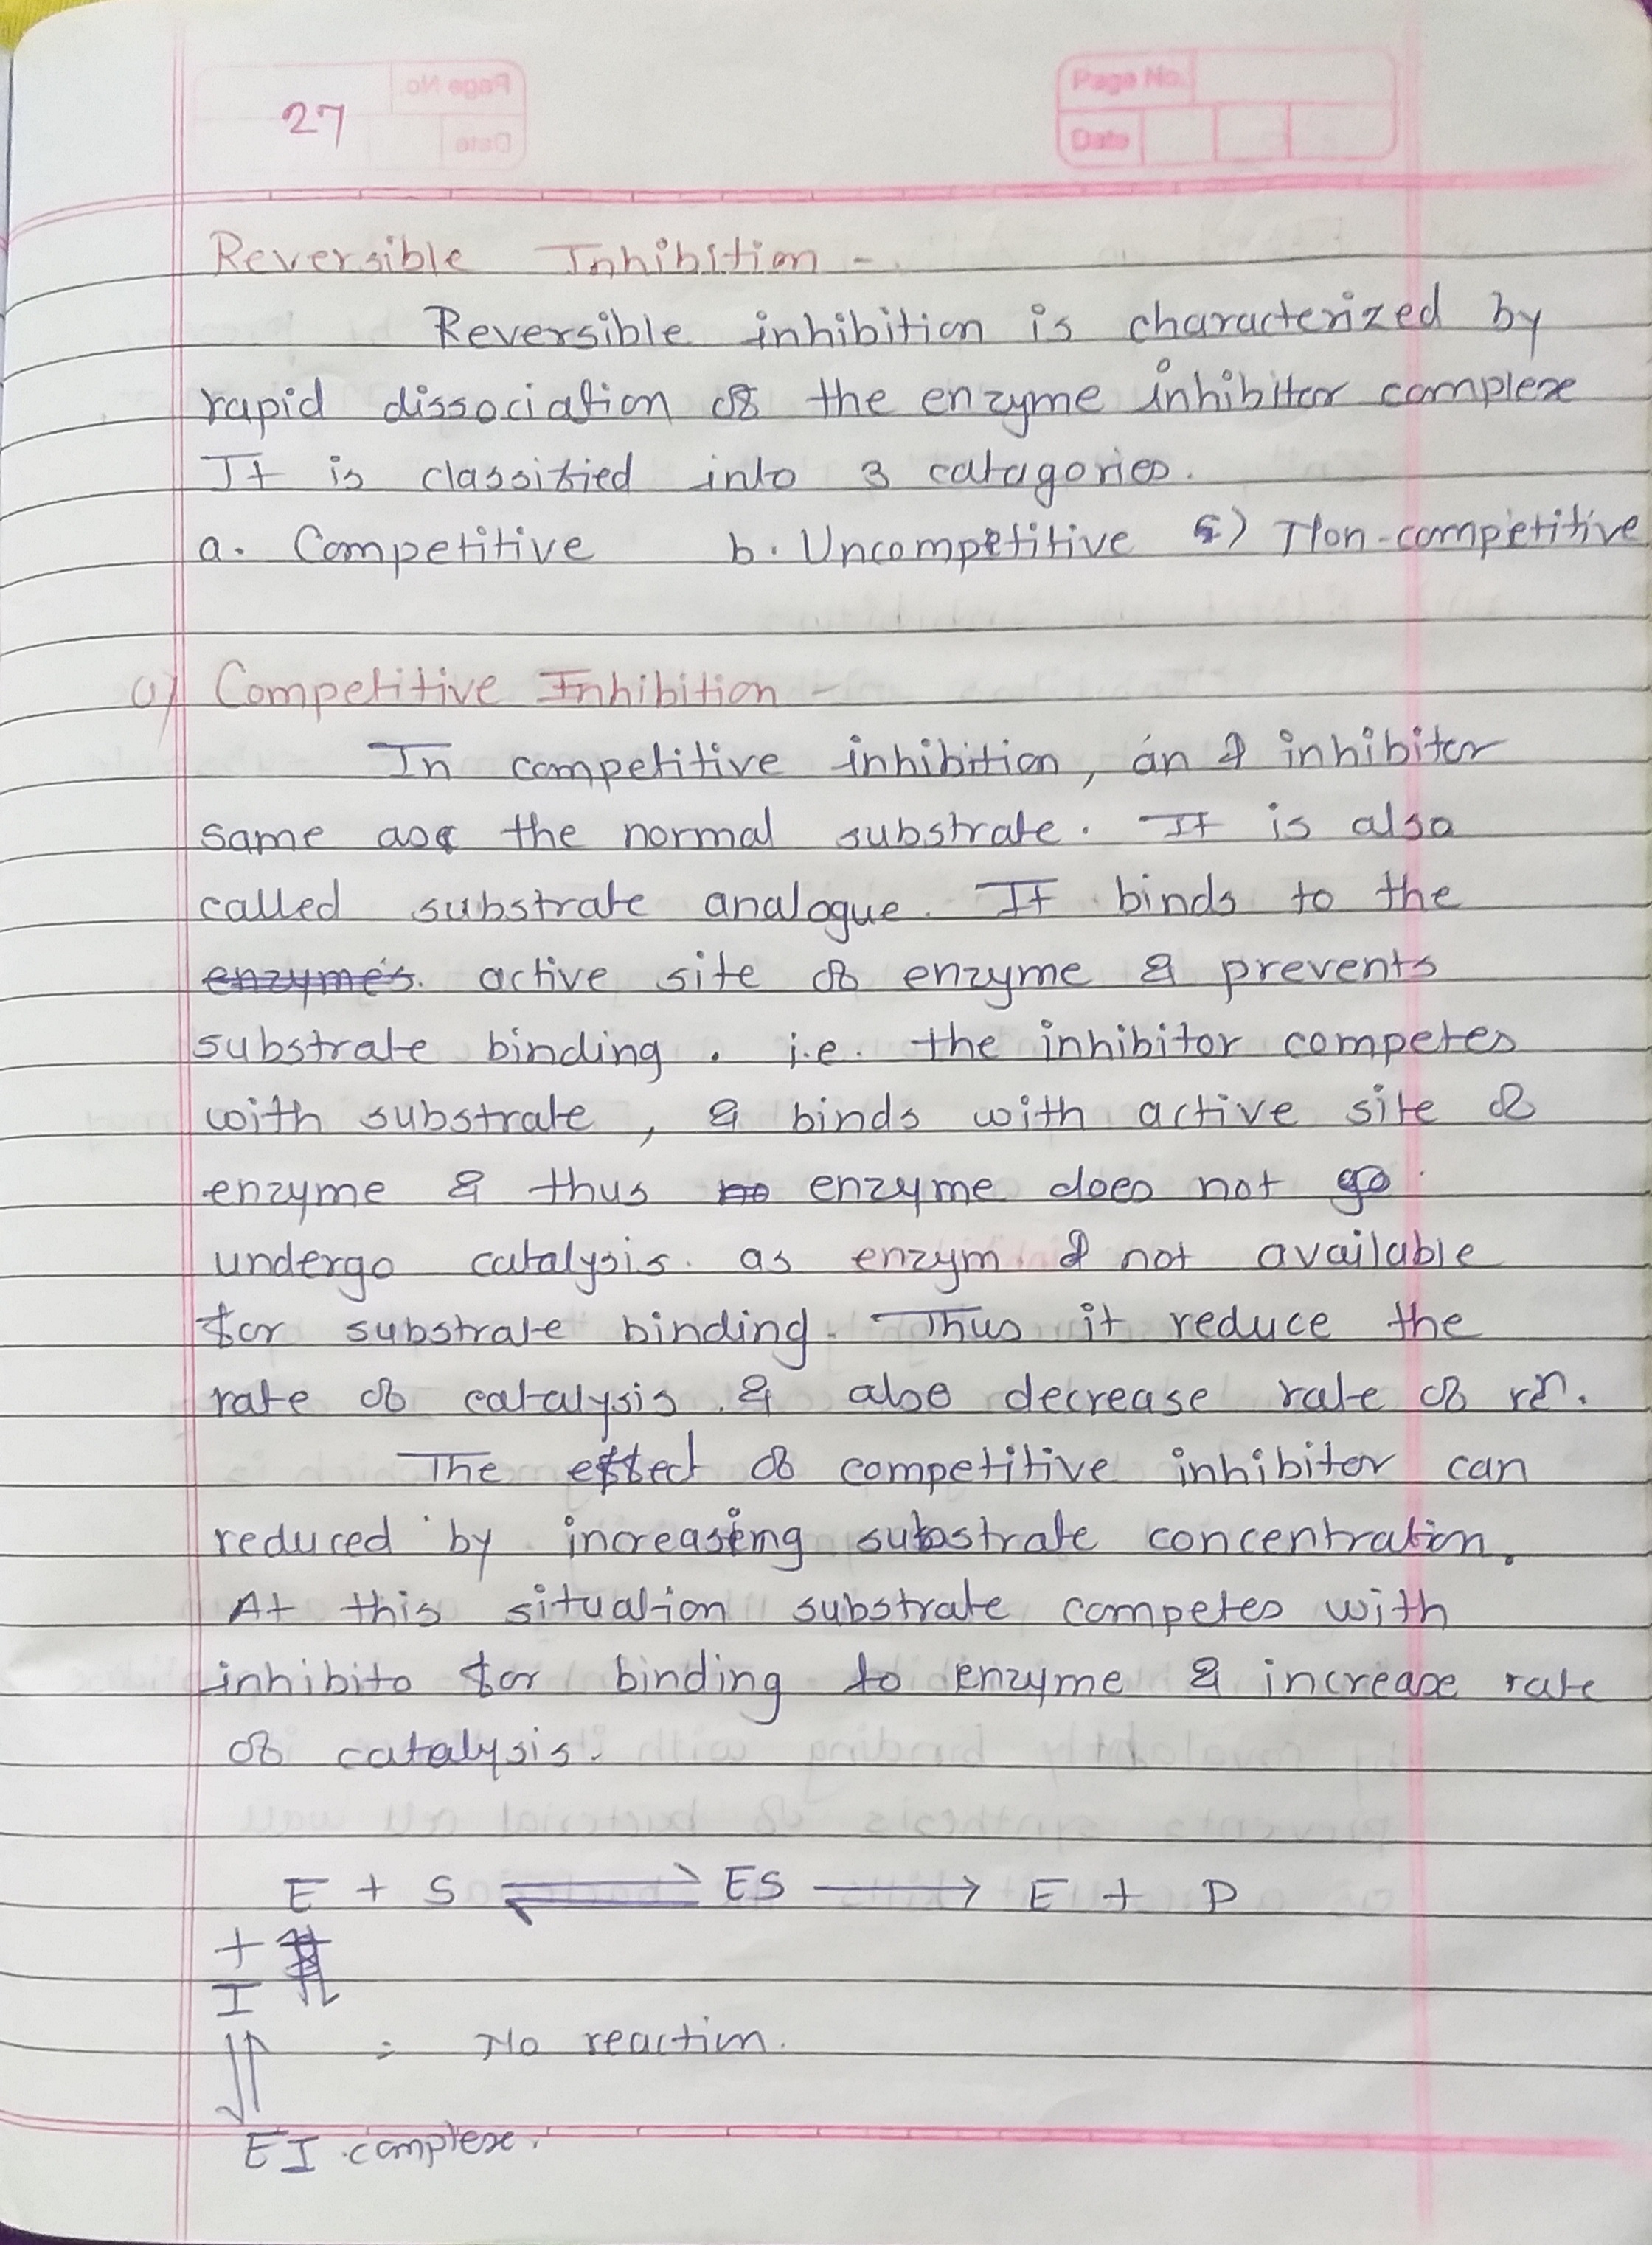 27
Page No.
Date
Reversible Inhibition -
Reversible inhibition is characterized by
rapid dissociation of the enzyme inhibitor complexe
It is classified into 3 catagories.
a. Competitive b. Uncompetitive c) Non-competitive
a) Competitive Inhibition -
In competitive inhibition, an inhibitor
same as the normal substrate. It is also
called substrate analogue. It binds to the
enzyme's. active site of enzyme & prevents
substrate binding. i.e. the inhibitor competes
with substrate, & binds with active site of
enzyme & thus no enzyme does not go
undergo catalysis. as enzym not available
for substrate binding. Thus it reduce the
rate of catalysis & also decrease rate of rxn.
The effect of competitive inhibitor can
reduced by increasing substrate concentration.
At this situation substrate competes with
inhibito for binding to enzyme & increase rate
of catalysis.
E + S ⇌ ES ⟶ E + P
+
I
⇌ = No reaction.
EI complexe.